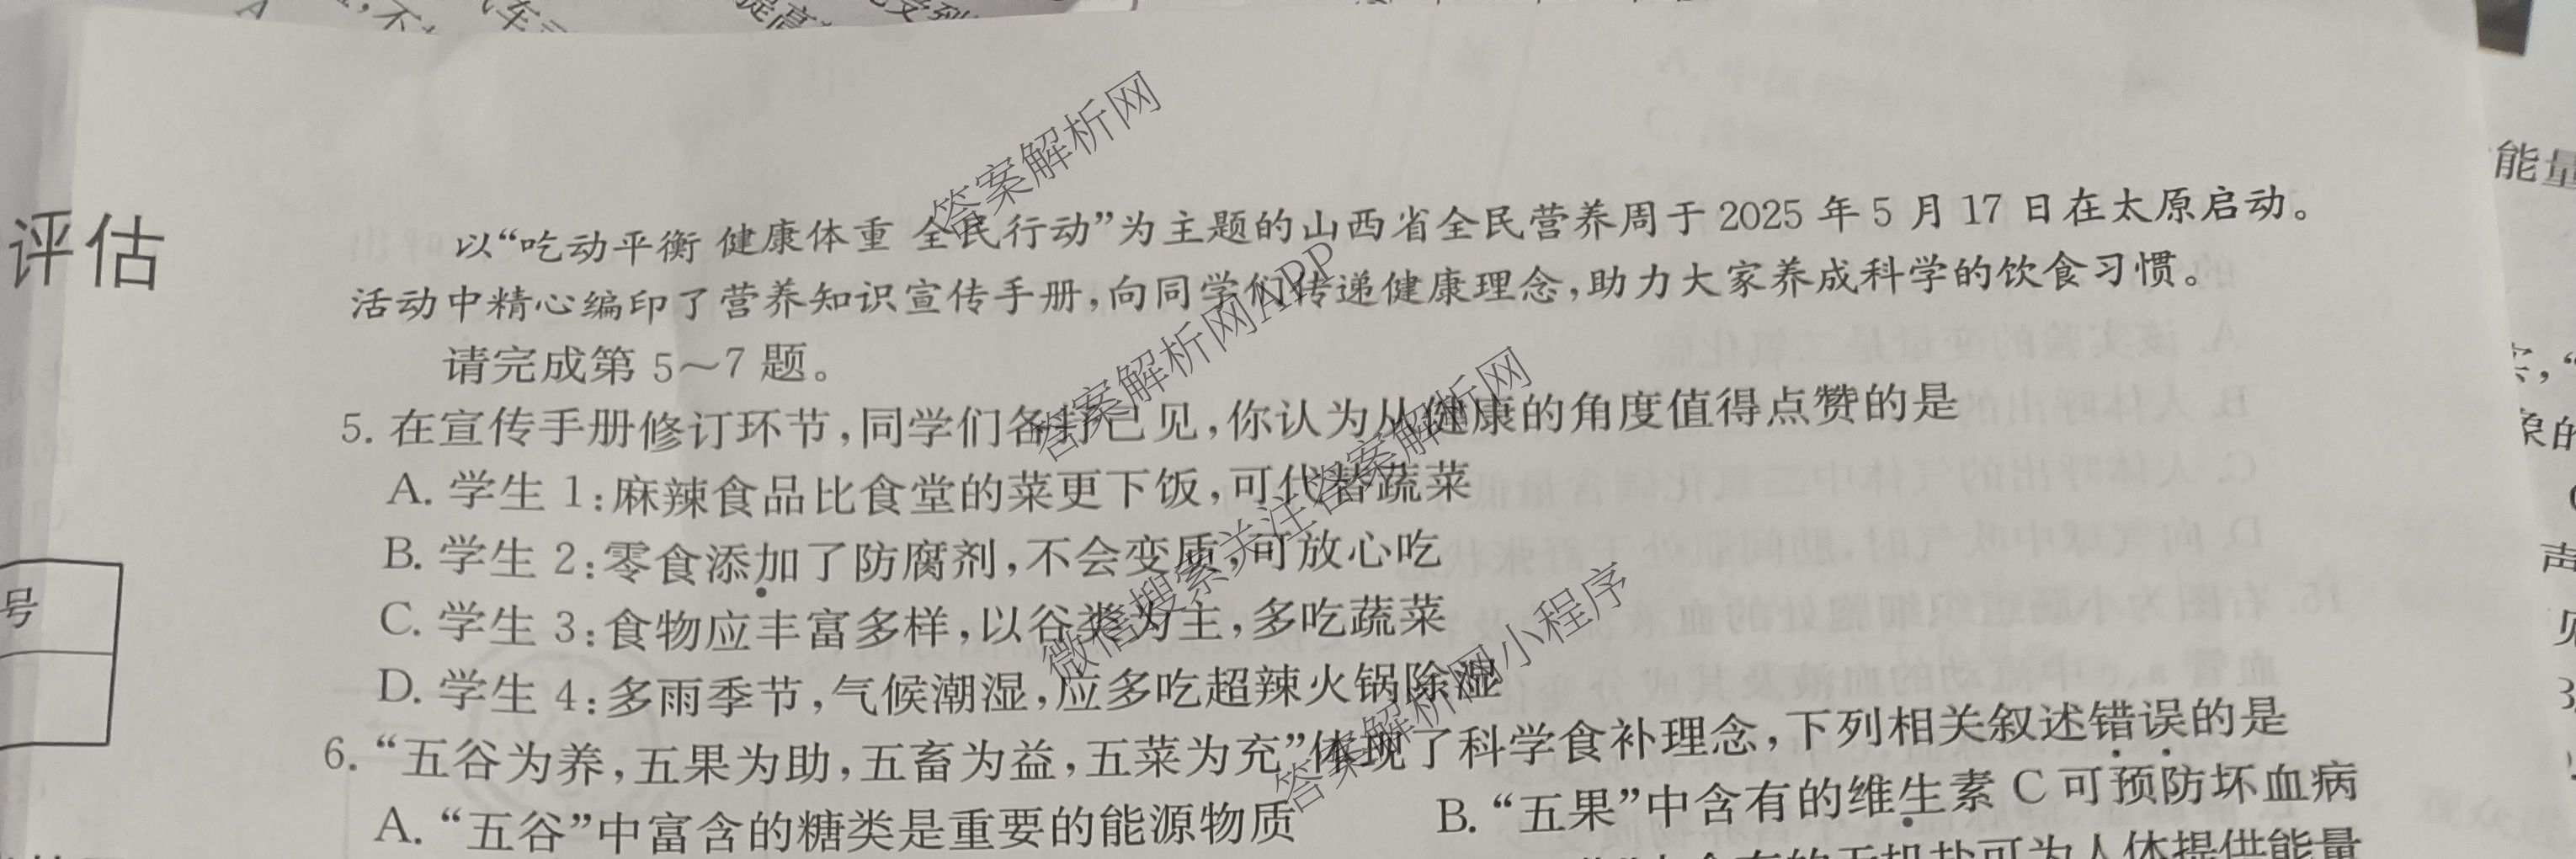 评估
号
以“吃动平衡 健康体重 全民行动”为主题的山西省全民营养周于 2025 年 5 月 17 日在太原启动。
活动中精心编印了营养知识宣传手册,向同学们传递健康理念,助力大家养成科学的饮食习惯。
请完成第 5～7 题。
5. 在宣传手册修订环节,同学们各抒己见,你认为从健康的角度值得点赞的是
A. 学生 1:麻辣食品比食堂的菜更下饭,可代替蔬菜
B. 学生 2:零食添加了防腐剂,不会变质,可放心吃
C. 学生 3:食物应丰富多样,以谷类为主,多吃蔬菜
D. 学生 4:多雨季节,气候潮湿,应多吃超辣火锅除湿
6. “五谷为养,五果为助,五畜为益,五菜为充”体现了科学食补理念,下列相关叙述错误的是
A. “五谷”中富含的糖类是重要的能源物质 B. “五果”中含有的维生素 C 可预防坏血病
含有的无机盐可为人体提供能量
能量
答案解析网
答案解析网APP
微信搜索关注答案解析网
答案解析网小程序